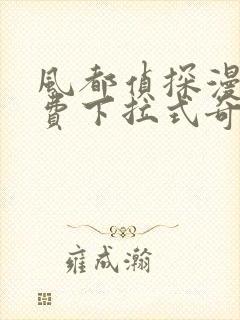 風都偵探漫
費下拉式奇
雍成瀚